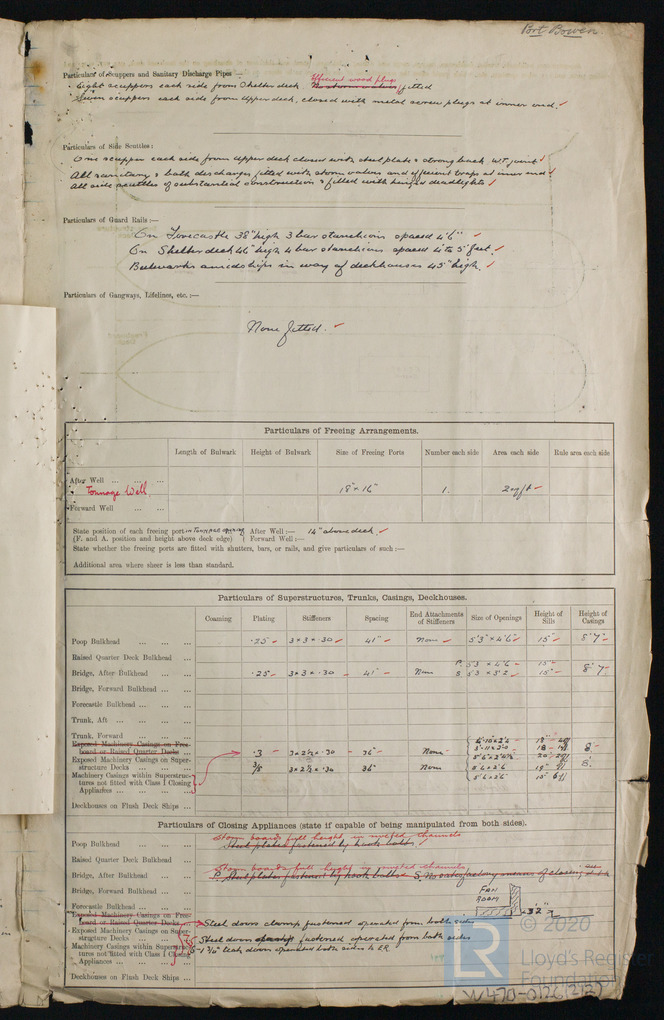 Port Bowen
Particulars of Scuppers and Sanitary Discharge Pipes —
Efficient wood plugs
Eight scuppers each side from Shelter deck No storm valves fitted
Seven scuppers each side from Upper deck, closed with metal screw plugs at inner end.
Particulars of Side Scuttles :
One scupper each side from upper deck closed with steel plate & strong back W.T. joint
All sanitary & bath discharges fitted with storm valves and efficient traps at inner end
All side scuttles of substantial construction & fitted with hinged deadlights
Particulars of Guard Rails :—
On Forecastle 38" high 3 bar stanchions spaced 4'6"
On Shelter deck 46" high 4 bar stanchions spaced 4 to 5 feet.
Bulwarks amidships in way of deckhouses 45" high.
Particulars of Gangways, Lifelines, etc. :—
None fitted.
Particulars of Freeing Arrangements.
Length of Bulwark Height of Bulwark Size of Freeing Ports Number each side Area each side Rule area each side
After Well ... ... ...
Tonnage Well 18" × 16" 1. 2 sq ft
Forward Well ... ...
State position of each freeing port in Tonnage opening After Well :— 14" above deck
(F. and A. position and height above deck edge) Forward Well :—
State whether the freeing ports are fitted with shutters, bars, or rails, and give particulars of such :—
Additional area where sheer is less than standard.
Particulars of Superstructures, Trunks, Casings, Deckhouses.
Coaming Plating Stiffeners Spacing End Attachments of Stiffeners Size of Openings Height of Sills Height of Casings
Poop Bulkhead ... ... ... .25 3 × 3 × .30 41" None 5'3" × 4'6" 15" 8' 7"
Raised Quarter Deck Bulkhead ...
P. 5 3 × 4'6 15"
Bridge, After Bulkhead ... ... .25 3 × 3 × .30 41 None S 5 3 × 5'2 15" 8' 7"
Bridge, Forward Bulkhead ... ...
Forecastle Bulkhead ... ... ...
Trunk, Aft ... ... ... ...
Trunk, Forward ... ... ...
Exposed Machinery Casings on Free-
board or Raised Quarter Decks ... .3 3 × 2½ × .30 36" None 18" 8'
Exposed Machinery Casings on Super-
structure Decks ... ... ... 3/8 3 × 2½ × .30 36" None 5'6 × 2'6 8'
Machinery Casings within Superstruc-
tures not fitted with Class I Closing
Appliances ... ... ... ... 5'6 × 2'6 15"
Deckhouses on Flush Deck Ships ...
Particulars of Closing Appliances (state if capable of being manipulated from both sides).
Storm boards full height in riveted channels
Poop Bulkhead ... ... ... Steel plates fastened by hook bolts
Raised Quarter Deck Bulkhead ...
Storm boards full height in riveted channels
Bridge, After Bulkhead ... ... P. Steel plates fastened by hook bolts S. No satisfactory means of closing
Bridge, Forward Bulkhead ... ...
Forecastle Bulkhead ... ... ...
FAN ROOM 32"
Exposed Machinery Casings on Free-
board or Raised Quarter Decks ... Steel doors clamp fastened operated from both sides
Exposed Machinery Casings on Super-
structure Decks ... ... ... Steel doors fastened operated from both sides
Machinery Casings within Superstruc-
tures not fitted with Class I Closing 1¾" teak doors operated both sides to ER
Appliances ... ... ... ...
Deckhouses on Flush Deck Ships ...
© 2020
LR
Lloyd's Register
Foundation
W470-0176(2/2)